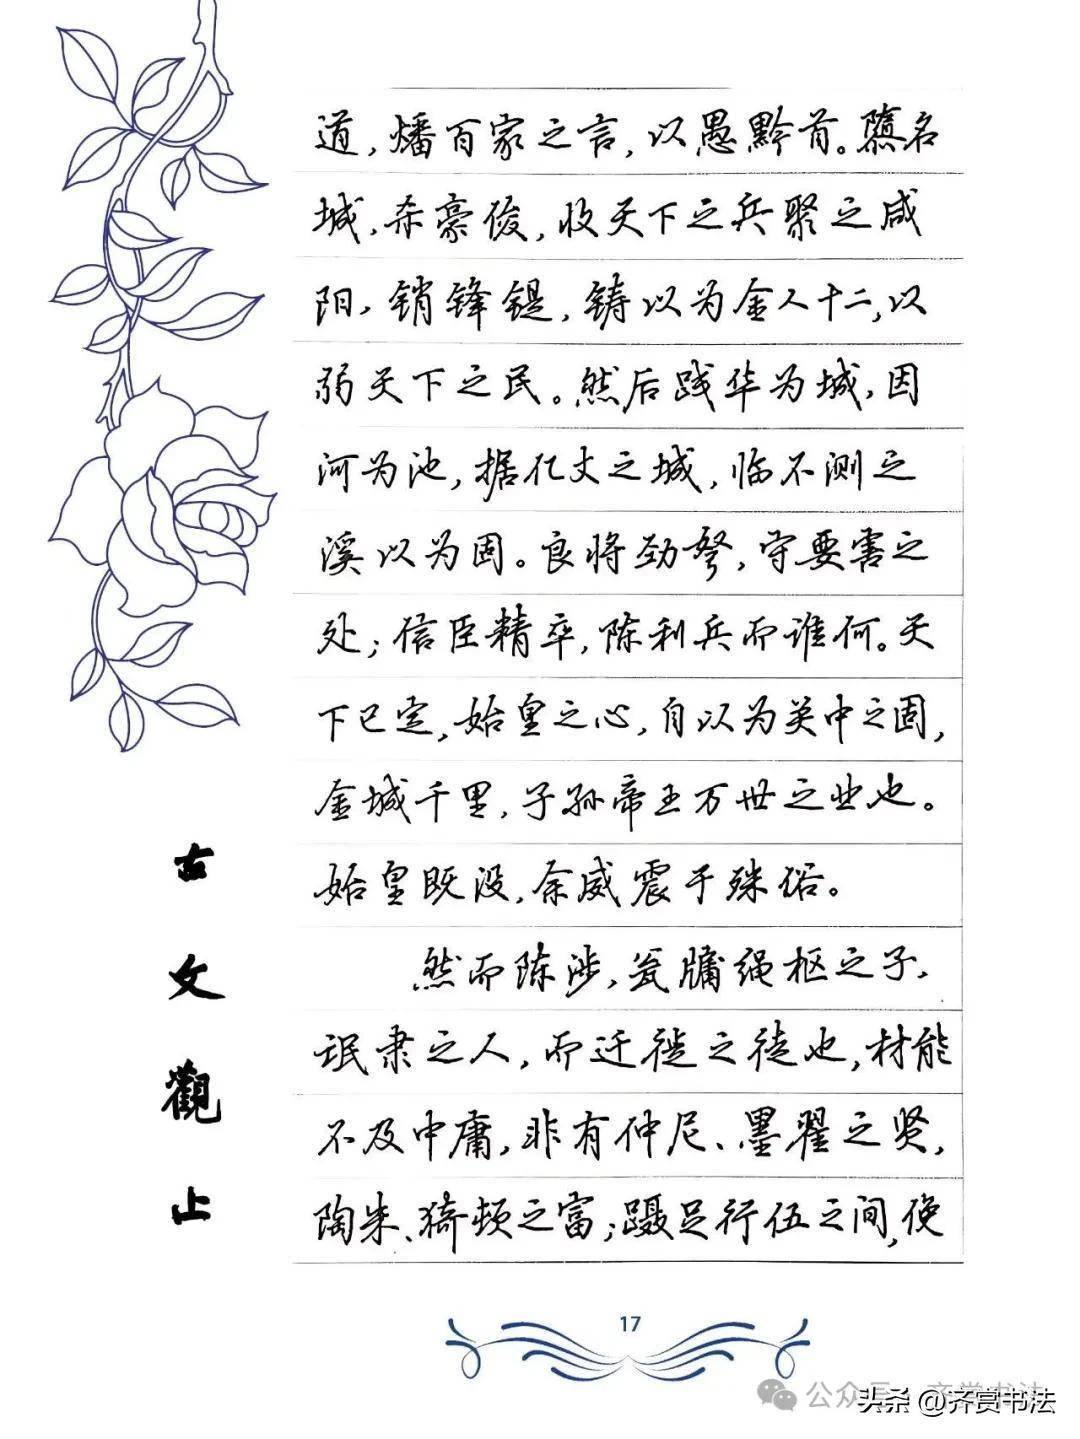 道,燔百家之言,以愚黔首。隳名
城,杀豪俊,收天下之兵聚之咸
阳,销锋鍉,铸以为金人十二,以
弱天下之民。然后践华为城,因
河为池,据亿丈之城,临不测之
溪以为固。良将劲弩,守要害之
处;信臣精卒,陈利兵而谁何。天
下已定,始皇之心,自以为关中之固,
金城千里,子孙帝王万世之业也。
始皇既没,余威震于殊俗。
然而陈涉,瓮牖绳枢之子,
氓隶之人,而迁徙之徒也,材能
不及中庸,非有仲尼、墨翟之贤,
陶朱、猗顿之富;蹑足行伍之间,俛
古文觀止
17
公众号 · 齐赏书法
头条 @齐赏书法